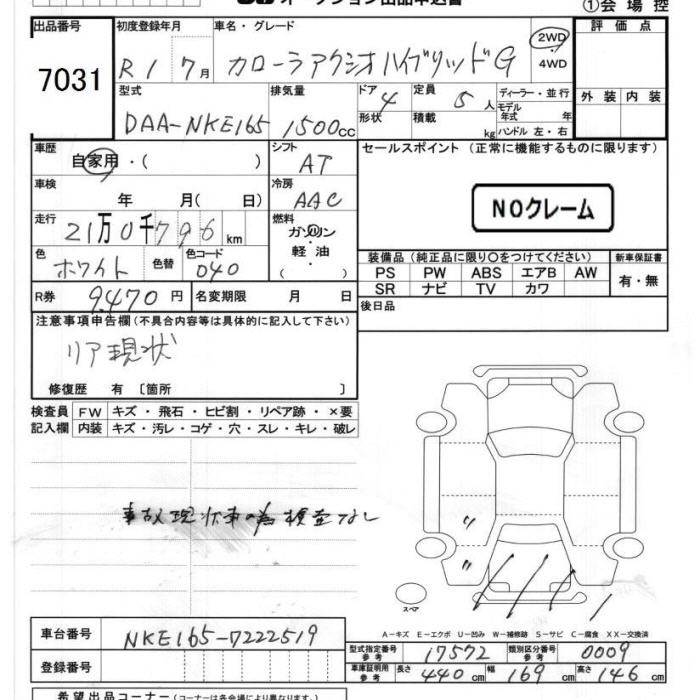 オークション出品申込書
①会場控
出品番号 初度登録年月 車名・グレード 評価点
7031 R1 7月 カローラアクシオハイブリッドG 2WD・4WD
型式 排気量 ドア 4 定員 5人 ディーラー・並行 外装 内装
DAA-NKE165 1500cc 形状 積載 kg モデル年式 年 ハンドル 左・右
車歴 自家用・( ) シフト AT セールスポイント(正常に機能するものに限ります)
車検 年 月( 日) 冷房 AAC
NOクレーム
走行 21万0千796km 燃料 ガソリン・軽油・
色 ホワイト 色替 色コード 040 装備品(純正品に限り○をつけてください) 新車保証書
PS PW ABS エアB AW 有・無
SR ナビ TV カワ
R券 9,470円 名変期限 月 日 後日品
注意事項申告欄(不具合内容等は具体的に記入して下さい)
リア現状
修復歴 有〔箇所 〕
検査員記入欄 FW キズ・飛石・ヒビ割・リペア跡・×要
内装 キズ・汚レ・コゲ・穴・スレ・キレ・破レ
事故現状車の為検査なし
スペア
A-キズ E-エクボ U-凹み W-補修跡 S-サビ C-腐食 XX-交換済
車台番号 NKE165-7222519 型式指定番号 参考 17572 類別区分番号 参考 0009
登録番号 車庫証明用 参考 長さ 440cm 幅 169cm 高さ 146cm
希望出品コーナー(コーナーは各会場により異なります。)